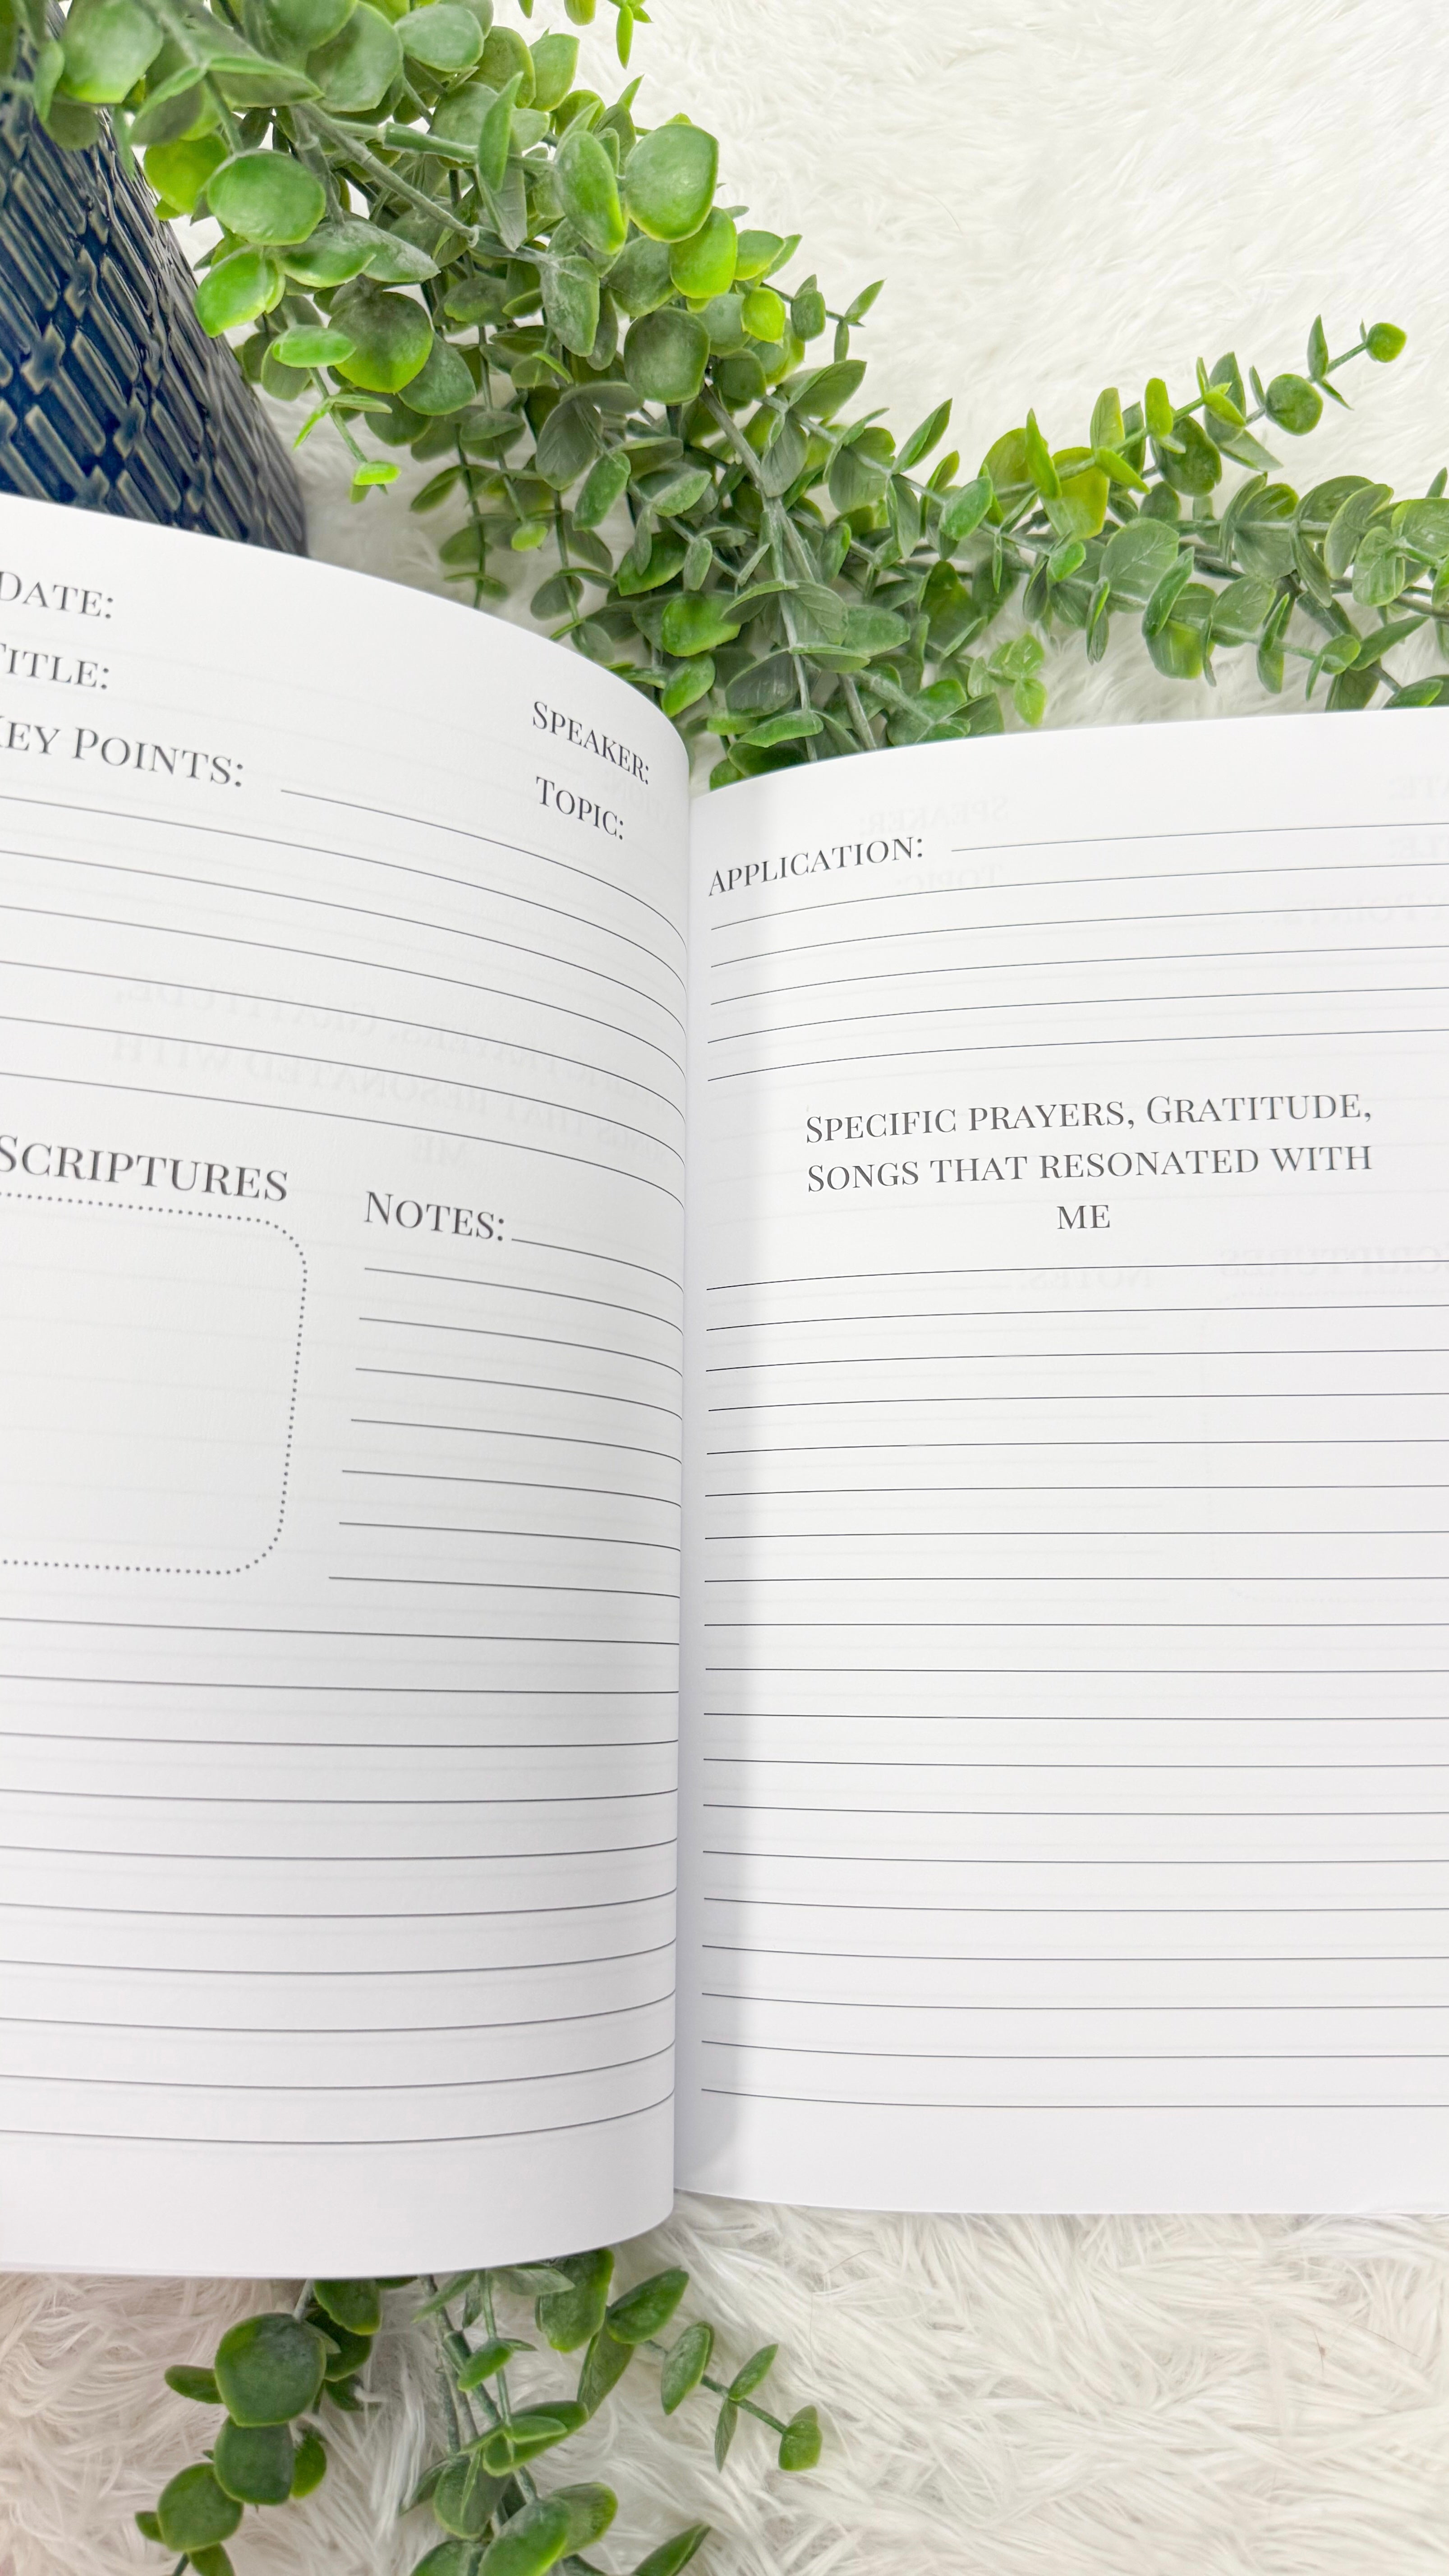 DATE:
TITLE:
SPEAKER:
KEY POINTS:
TOPIC:
SCRIPTURES
NOTES:
APPLICATION:
SPECIFIC PRAYERS, GRATITUDE,
SONGS THAT RESONATED WITH
ME